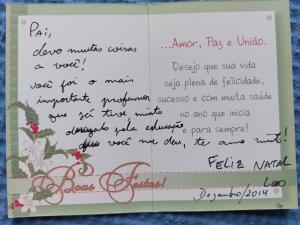 Pai,
devo muitas coisas
a você!
Você foi o mais
importante professor
que já tive muito
obrigado pela educação
que você me deu, te amo muito!
...Amor, Paz e União.
Desejo que sua vida
seja plena de felicidade,
sucesso e com muita saúde
no ano que inicia
e para sempre!
FELIZ NATAL
Dezembro/2014
Boas Festas!